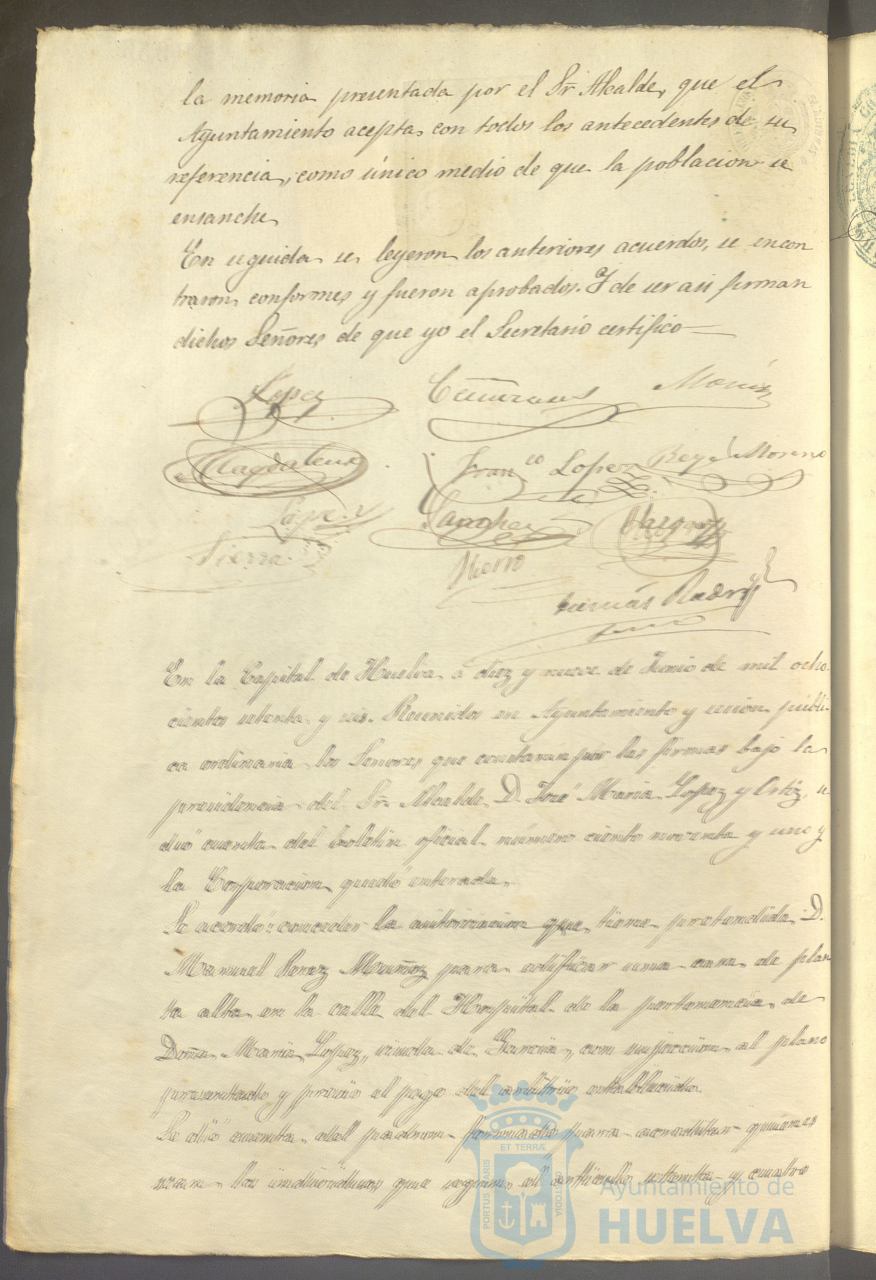 la memoria presentada por el Sr. Alcalde, que el
Ayuntamiento acepta con todos los antecedentes de su
referencia, como único medio de que la poblacion se
ensanche
En seguida se leyeron los anteriores acuerdos, se encon
traron conformes y fueron aprobados. Y de ser asi firman
dichos Señores de que yo el Secretario certifico
Lopez
Magdalena Franco Lopez Rey Moreno
Lopez Sanchez Vazquez
Sierra Hierro
En la Capital de Huelva a diez y nueve de Junio de mil ocho
cientos setenta y seis. Reunidos en Ayuntamiento y sesion públi
ca ordinaria los Señores que constaran por las firmas bajo la
presidencia del Sr. Alcalde D. José Maria Lopez y Ortiz, se
dió cuenta del boletin oficial número ciento noventa y uno y
la Corporacion quedó enterada.
Se acordó conceder la autorizacion que tiene pretendida D.
Manuel Perez Muñoz para edificar una casa de plan
ta alta en la calle del Hospital de la pertenencia de
Doña Maria Lopez, viuda de Garcia, con sujecion al plano
presentado y prévio el pago del arbitrio establecido
Se dió cuenta del padron formado para acreditar quienes
sean los individuos que segun el artículo setenta y cuatro
PORTUS MARIS
ET TERRÆ
CUSTODIA
Ayuntamiento de
HUELVA